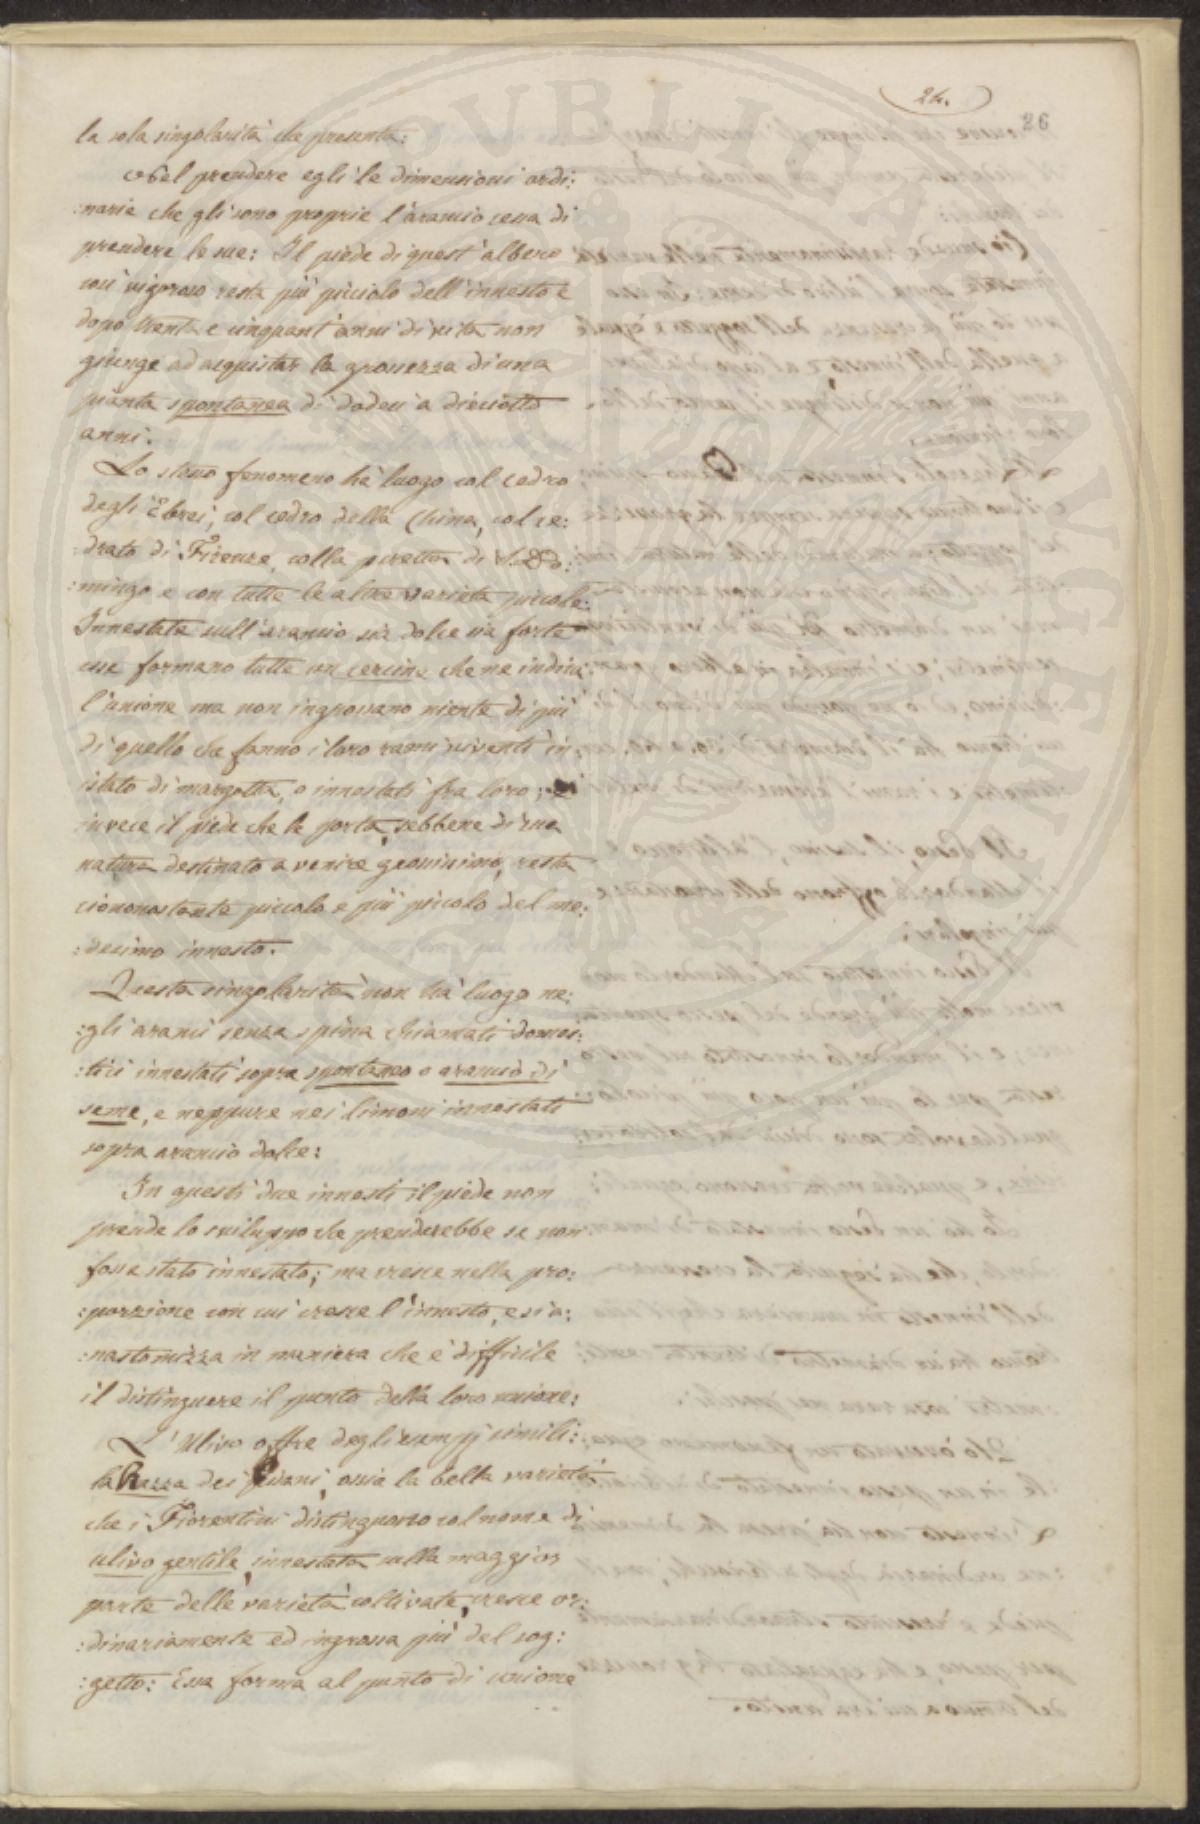 24.
26
la sola singolarità che presenta:
Nel prendere egli le dimensioni ordi:
:narie che gli sono proprie l'arancio cessa di
prendere le sue: Il piede di quest'albero
così vigoroso resta più picciolo dell'innesto e
dopo trenta e cinquant'anni di vita non
giunge ad acquistar la grossezza di una
pianta spontanea di dodeci a dieciotto
anni.
Lo stesso fenomeno hà luogo col cedro
degli Ebrei, col cedro della China, col ce:
:drato di Firenze, colla puretta di S. Do:
:mingo e con tutte le altre varietà piccole:
Innestate sull'arancio sia dolce sia forte
esse formano tutte un cercine che ne indica
l'unione ma non ingrossano niente di più
di quello che fanno i loro rami viventi in
istato di margotta, o innestati fra loro;
invece il piede che le porta, sebbene di sua
natura destinato a venire grossissimo, resta
ciononostante piccolo e più piccolo del me:
:desimo innesto.
Questa singolarità non hà luogo ne:
:gli aranci senza spina chiamati domes:
:tici innestati sopra spontaneo o arancio di
seme, e neppure nei limoni innestati
sopra arancio dolce:
In questi due innesti il piede non
prende lo sviluppo che prenderebbe se non
fosse stato innestato; ma cresce nella pro:
:porzione con cui cresce l'innesto, e si a:
:nastomizza in maniera che è difficile
il distinguere il punto della loro unione:
L'Ulivo offre degli esempj simili:
la Razza dei Pisani, ossia la bella varietà
che i Fiorentini distinguono col nome di
ulivo gentile, innestata sulla maggior
parte delle varietà coltivate, cresce or:
:dinariamente ed ingrossa più del sog:
:getto: Essa forma al punto di unione